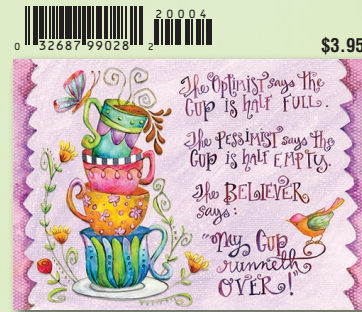 20004
0 32687 99028 2
$3.95
The Optimist says the
Cup is half full.
The Pessimist says the
Cup is half empty.
The BELIEVER
says:
"My Cup
runneth
OVER!"